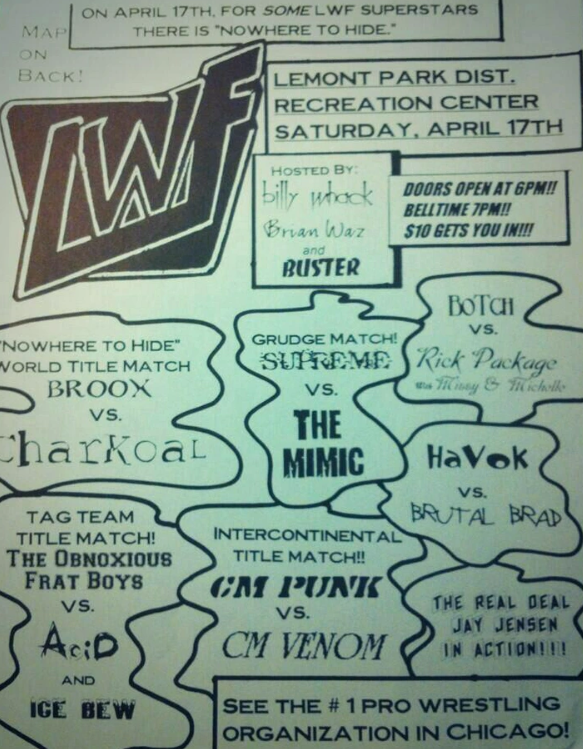 ON APRIL 17TH, FOR SOME LWF SUPERSTARS
THERE IS "NOWHERE TO HIDE."
MAP
ON
BACK!
LWF
LEMONT PARK DIST.
RECREATION CENTER
SATURDAY, APRIL 17TH
HOSTED BY:
billy whack
Brian Waz
and
BUSTER
DOORS OPEN AT 6PM!!
BELLTIME 7PM!!
$10 GETS YOU IN!!!
"NOWHERE TO HIDE"
WORLD TITLE MATCH
BROOX
VS.
CharKoaL
GRUDGE MATCH!
SUPREME
VS.
THE
MIMIC
BoTCH
VS.
Rick Package
with Missy & Michelle
HaVoK
VS.
BRUTAL BRAD
TAG TEAM
TITLE MATCH!
THE OBNOXIOUS
FRAT BOYS
VS.
AciD
AND
ICE BEW
INTERCONTINENTAL
TITLE MATCH!!
CM PUNK
VS.
CM VENOM
THE REAL DEAL
JAY JENSEN
IN ACTION!!!
SEE THE #1 PRO WRESTLING
ORGANIZATION IN CHICAGO!